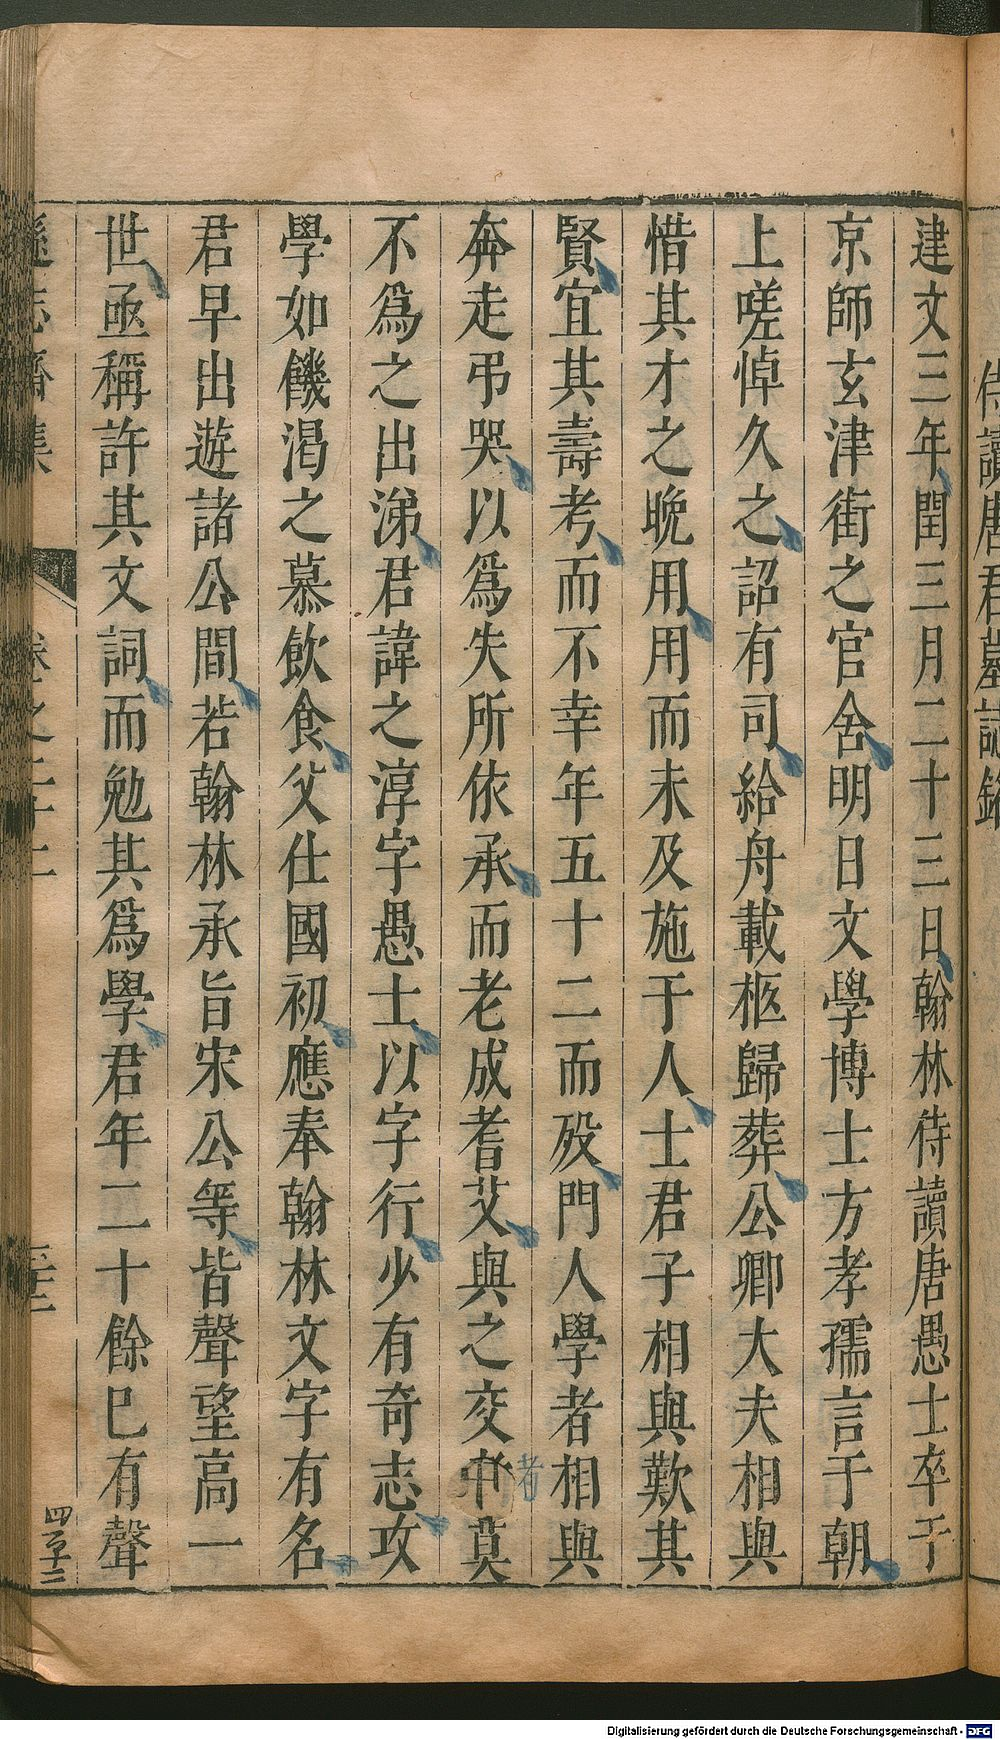 侍讀唐君墓誌銘
建文三年閏三月二十三日翰林待讀唐愚士卒于
京師玄津街之官舍明日文學博士方孝孺言于朝
上嗟悼久之詔有司給舟載柩歸葬公卿大夫相與
惜其才之晚用用而未及施于人士君子相與歎其
賢宜其壽考而不幸年五十二而殁門人學者相與
奔走弔哭以爲失所依承而老成耆艾與之交者莫
不爲之出涕君諱之淳字愚士以字行少有奇志攻
學如饑渴之慕飲食父仕國初應奉翰林文字有名
君早出遊諸公間若翰林承旨宋公等皆聲望高一
世亟稱許其文詞而勉其爲學君年二十餘巳有聲
遜志齋集 卷之二十二
四百二
Digitalisierung gefördert durch die Deutsche Forschungsgemeinschaft - DFG